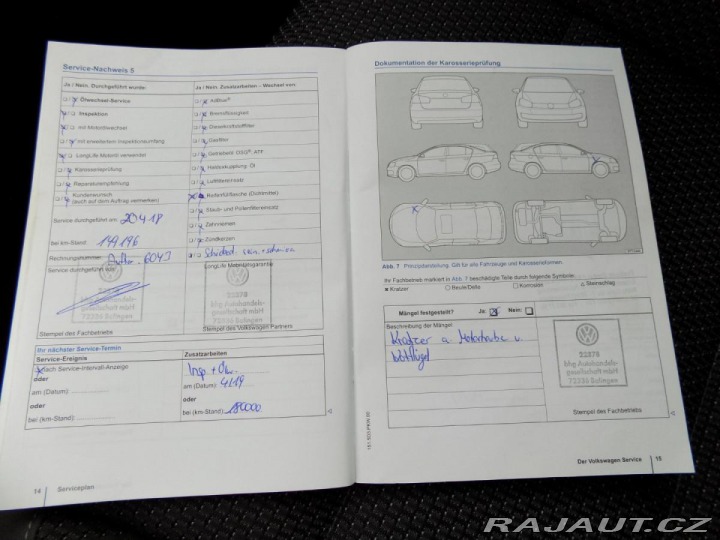 Service-Nachweis 5
Ja / Nein. Durchgeführt wurde:
Ja / Nein. Zusatzarbeiten – Wechsel von:
Ölwechsel-Service
AdBlue®
Inspektion
Bremsflüssigkeit
mit Motorölwechsel
Dieselkraftstofffilter
mit erweitertem Inspektionsumfang
Gasfilter
LongLife Motoröl verwendet
Getriebeöl: DSG®, ATF
Karosserieprüfung
Haldexkupplung: Öl
Reparaturempfehlung
Luftfiltereinsatz
Kundenwunsch
(auch auf dem Auftrag vermerken)
Reifenfüllflasche (Dichtmittel)
Staub- und Pollenfiltereinsatz
Service durchgeführt am: 20.4.18
Zahnriemen
bei km-Stand: 149196
Zündkerzen
Rechnungsnummer:
Service durchgeführt von:
LongLife Mobilitätsgarantie
22278
bhg Autohandels-
gesellschaft mbH
72336 Balingen
22278
bhg Autohandels-
gesellschaft mbH
72336 Balingen
Stempel des Fachbetriebs
Stempel des Volkswagen Partners
Ihr nächster Service-Termin
Service-Ereignis
Zusatzarbeiten
nach Service-Intervall-Anzeige
Insp + Öl
oder
am (Datum): 4/19
am (Datum):
oder
oder
bei (km-Stand): 180000
bei (km-Stand):
14 Serviceplan
Dokumentation der Karosserieprüfung
Abb. 7 Prinzipdarstellung: Gilt für alle Fahrzeuge und Karosserieformen.
Ihr Fachbetrieb markiert in Abb. 7 beschädigte Teile durch folgende Symbole:
× Kratzer
○ Beule/Delle
□ Korrosion
△ Steinschlag
Mängel festgestellt? Ja: Nein:
Beschreibung der Mängel:
Kratzer a. Motorhaube u.
22278
bhg Autohandels-
gesellschaft mbH
72336 Balingen
Stempel des Fachbetriebs
Der Volkswagen Service 15
RAJAUT.CZ